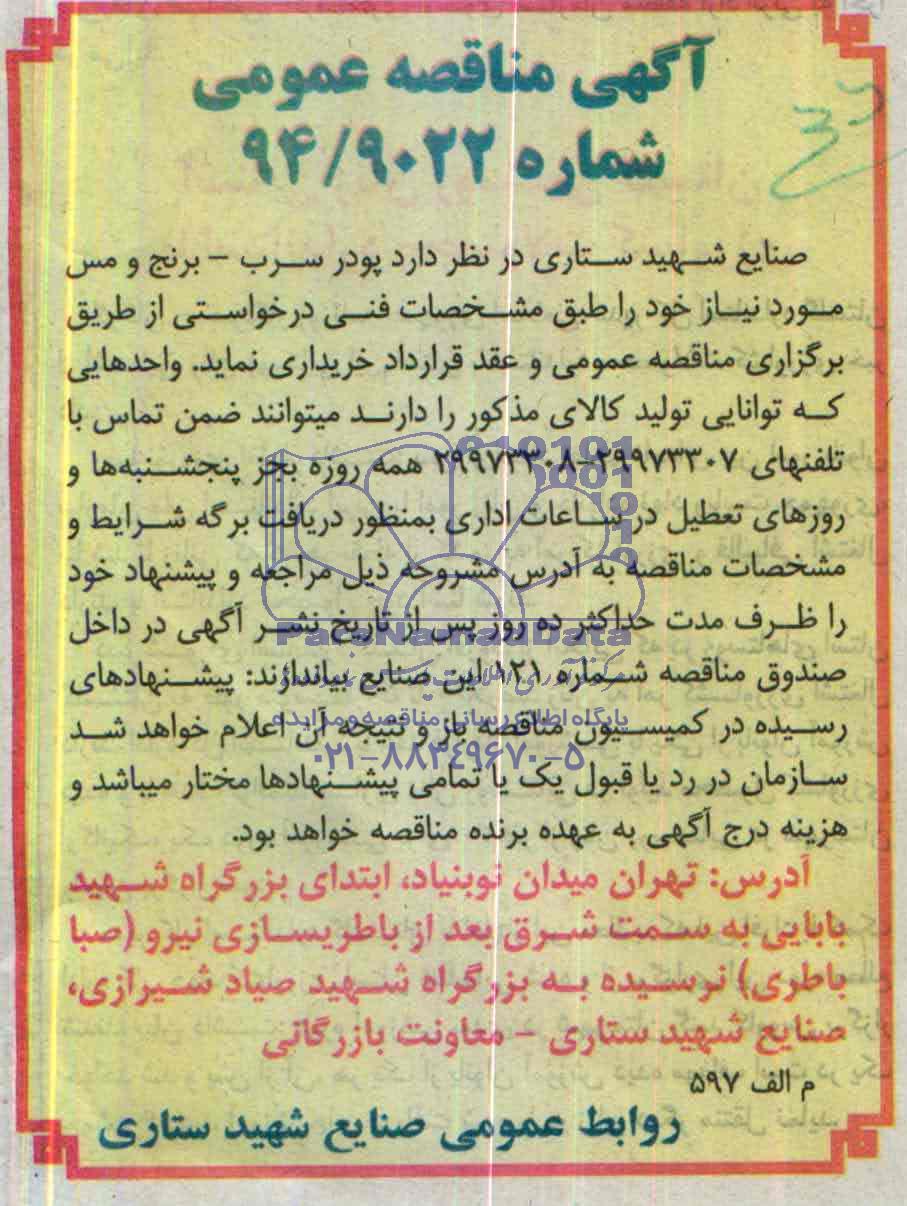 آگهی مناقصه عمومی
شماره ۹۴/۹۰۲۲
صنایع شهید ستاری در نظر دارد پودر سرب - برنج و مس
مورد نیاز خود را طبق مشخصات فنی درخواستی از طریق
برگزاری مناقصه عمومی و عقد قرارداد خریداری نماید. واحدهایی
که توانایی تولید کالای مذکور را دارند میتوانند ضمن تماس با
تلفنهای ۲۹۹۷۳۳۰۷-۲۹۹۷۳۳۰۸ همه روزه بجز پنجشنبه‌ها و
روزهای تعطیل در ساعات اداری بمنظور دریافت برگه شرایط و
مشخصات مناقصه به آدرس مشروحه ذیل مراجعه و پیشنهاد خود
را ظرف مدت حداکثر ده روز پس از تاریخ نشر آگهی در داخل
ParsNamadData
صندوق مناقصه شماره ۱۲۱ این صنایع بیاندازند: پیشنهادهای
پایگاه اطلاع رسانی مناقصه و مزایده
رسیده در کمیسیون مناقصه باز و نتیجه آن اعلام خواهد شد
۰۲۱-۸۸۳۴۹۶۷۰-۵
سازمان در رد یا قبول یک یا تمامی پیشنهادها مختار میباشد و
هزینه درج آگهی به عهده برنده مناقصه خواهد بود.
آدرس: تهران میدان نوبنیاد، ابتدای بزرگراه شهید
بابایی به سمت شرق بعد از باطریسازی نیرو (صبا
باطری) نرسیده به بزرگراه شهید صیاد شیرازی،
صنایع شهید ستاری - معاونت بازرگانی
م الف ۵۹۷
روابط عمومی صنایع شهید ستاری